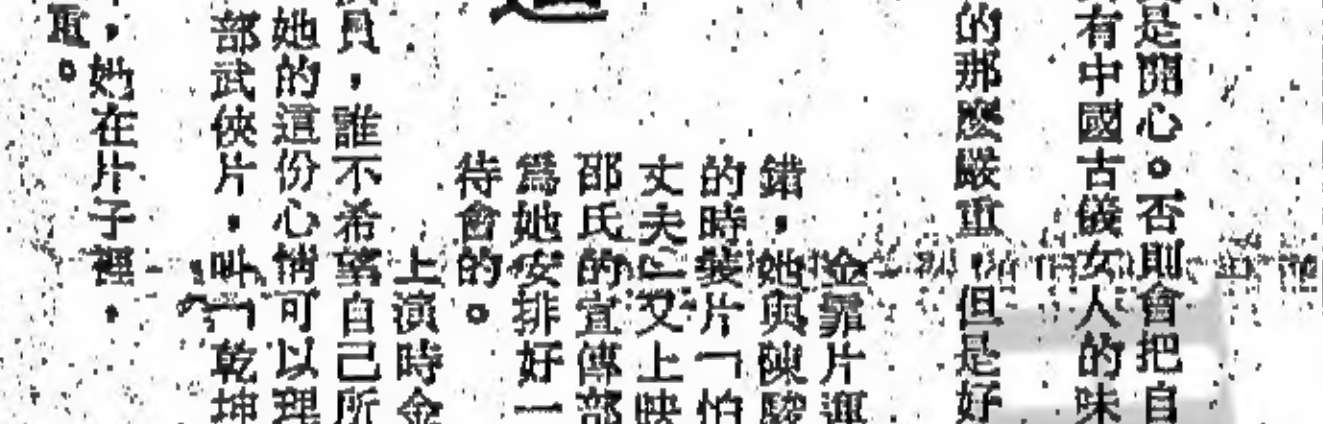 是開心。否則會把自
有中國古儀女人的味
的那麼嚴重，但是好
金霏片運
錯，她與陳駿
的時裝片「怕
丈夫」又上映
邵氏的宣傳部
爲她安排好一
待會的。
上演時金
員，誰不希望自己所
她的這份心情可以理
部武俠片，叫「乾坤
，她在片子裡，
重。